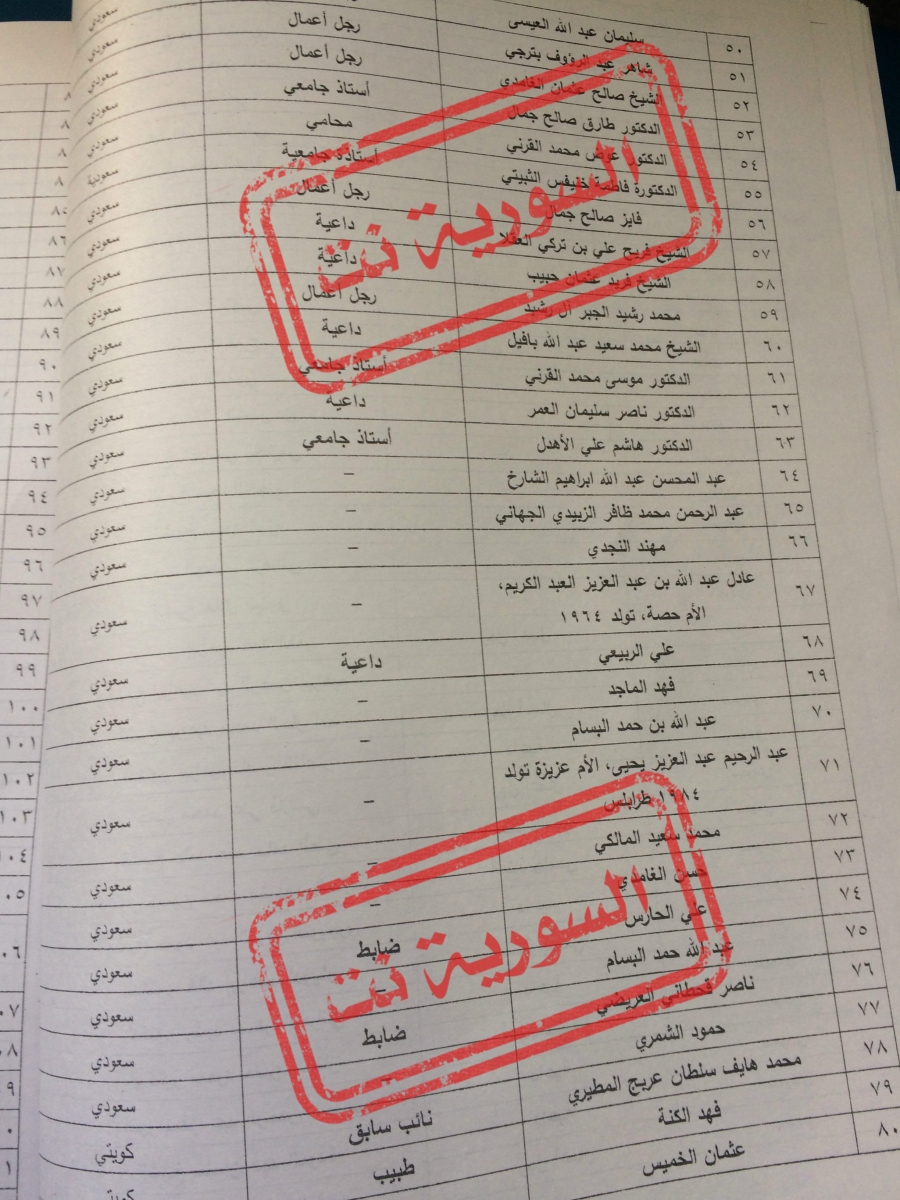 ٥٠ سليمان عبد الله العيسى
٥١ شاهر عبد الرؤوف بترجي رجل أعمال سعودي
٥٢ الشيخ صالح عثمان الغامدي رجل أعمال سعودي
٥٣ الدكتور طارق صالح جمال أستاذ جامعي سعودي
٥٤ الدكتور عوض محمد القرني محامي سعودي
٥٥ الدكتورة فاطمة خليفس الثبيتي أستاذة جامعية سعودية
٥٦ فايز صالح جمال رجل أعمال سعودي
٥٧ الشيخ فريح علي بن تركي العقلا داعية سعودي
٥٨ الشيخ فريد عثمان حبيب داعية سعودي
٥٩ محمد رشيد الجبر آل رشيد رجل أعمال سعودي
٦٠ الشيخ محمد سعيد عبد الله بافيل داعية سعودي
٦١ الدكتور موسى محمد القرني أستاذ جامعي سعودي
٦٢ الدكتور ناصر سليمان العمر داعية سعودي
٦٣ الدكتور هاشم علي الأهدل أستاذ جامعي سعودي
٦٤ عبد المحسن عبد الله ابراهيم الشارخ – سعودي
٦٥ عبد الرحمن محمد ظافر الزبيدي الجهاني – سعودي
٦٦ مهند النجدي – سعودي
٦٧ عادل عبد الله بن عبد العزيز العبد الكريم، – سعودي
الأم حصة، تولد ١٩٦٤
٦٨ علي الربيعي داعية سعودي
٦٩ فهد الماجد – سعودي
٧٠ عبد الله بن حمد البسام – سعودي
٧١ عبد الرحيم عبد العزيز يحيى، الأم عزيزة تولد – سعودي
١٩٨٤ طرابلس
٧٢ محمد سعيد المالكي – سعودي
٧٣ حسن الغامدي – سعودي
٧٤ علي الحارس ضابط سعودي
٧٥ عبد الله حمد البسام – سعودي
٧٦ ناصر قحطاني العريضي ضابط سعودي
٧٧ حمود الشمري سعودي
٧٨ محمد هايف سلطان عريج المطيري نائب سابق كويتي
٧٩ فهد الكنة طبيب كويتي
٨٠ عثمان الخميس
السورية نت
السورية نت
٨٦
٨٧
٨٨
٨٩
٩٠
٩١
٩٢
٩٣
٩٤
٩٥
٩٦
٩٧
٩٨
٩٩
١٠٠
١٠١
١٠٢
١٠٣